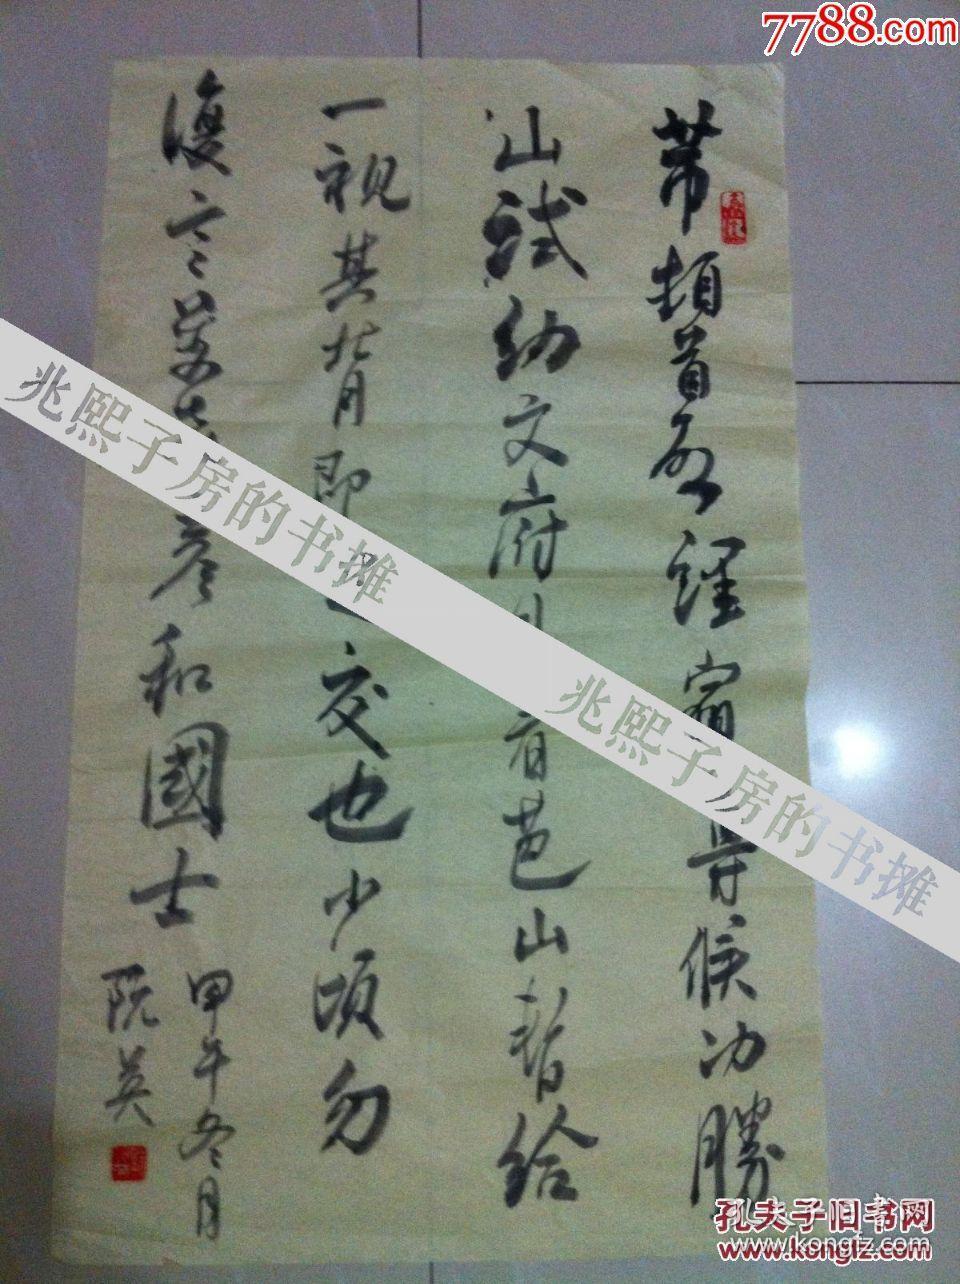 7788.com
芾頓首 經宿 得 候 勝
山試納文府且看芭山暫給
一視其背即 交也少頃勿
復言 彦和國士
甲午冬月
阮英
兆熙子房的书摊
兆熙子房的书摊
孔夫子旧书网
www.kongfz.com